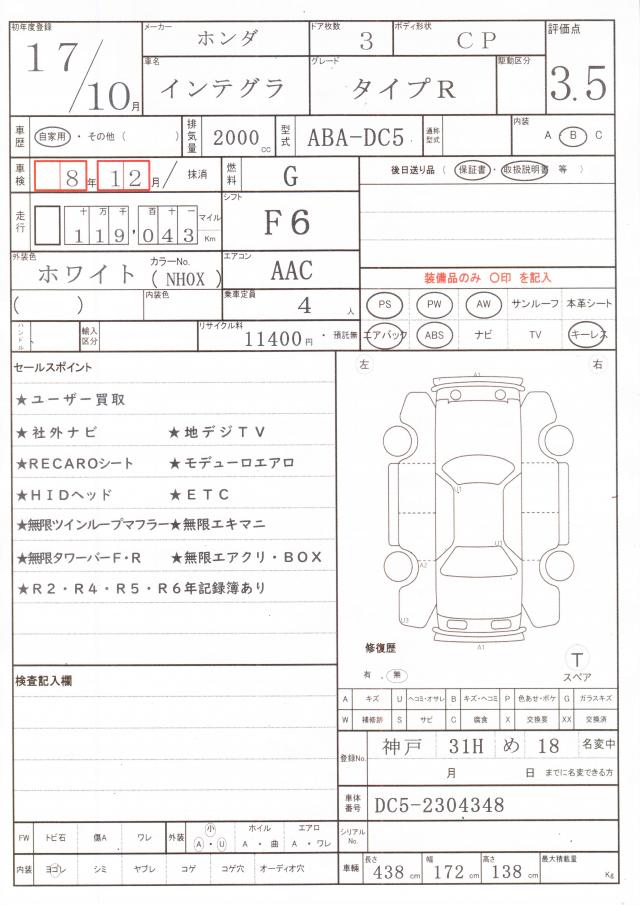 初年度登録 17/10月 メーカー ホンダ ドア枚数 3 ボディ形状 CP 評価点 3.5
車名 インテグラ グレード タイプR 駆動区分
車歴 自家用・その他（ ） 排気量 2000cc 型式 ABA-DC5 通称型式 内装 A B C
車検 8年12月/ 抹消 燃料 G 後日送り品（保証書・取扱説明書 等）
走行 十万千百十一 119,043 マイル Km シフト F6
外装色 ホワイト カラーNo. (NH0X) エアコン AAC 装備品のみ 〇印 を記入
( ) 内装色 乗車定員 4人 PS PW AW サンルーフ 本革シート
ハンドル 輸入区分 リサイクル料 11400円・預託無 エアバック ABS ナビ TV キーレス
セールスポイント 左 右
★ユーザー買取 A1
★社外ナビ ★地デジTV
★RECAROシート ★モデューロエアロ
★HIDヘッド ★ETC U1
★無限ツインループマフラー★無限エキマニ
★無限タワーバーF・R ★無限エアクリ・BOX U1 A2
★R2・R4・R5・R6年記録簿あり U3
修復歴 A1
有．無 T スペア
検査記入欄
A キズ U ヘコミ・オサレ B キズ・ヘコミ P 色あせ・ボケ G ガラスキズ
W 補修跡 S サビ C 腐食 X 交換要 XX 交換済
登録No. 神戸 31H め 18 名変中
月 日 までに名変できる方
車体番号 DC5-2304348
FW トビ石 傷A ワレ 外装 小 A・U ホイル A・曲 エアロ A・ワレ シリアルNo.
内装 ヨゴレ シミ ヤブレ コゲ コゲ穴 オーディオ穴 車輛 長さ 438cm 幅 172cm 高さ 138cm 最大積載量 Kg